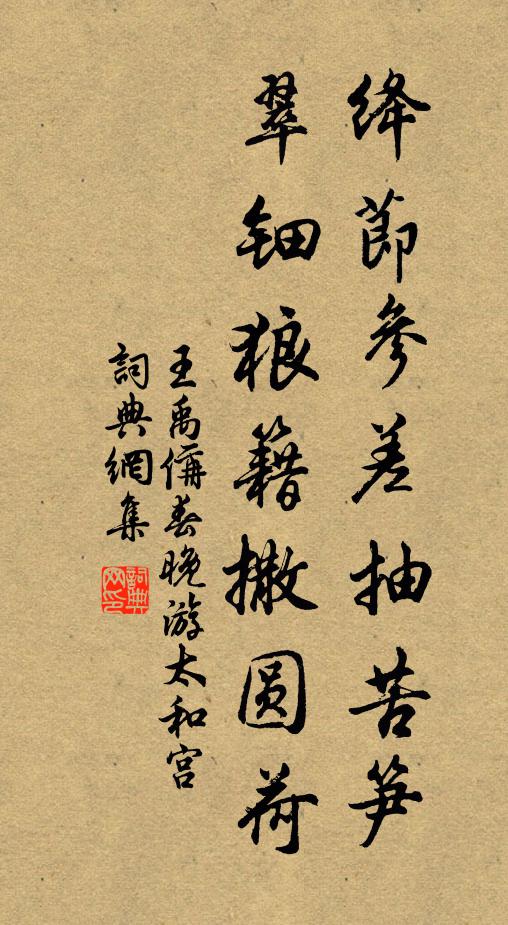 绛節參差抽苦笋
翠钿狼籍撒圆荷
王禹偁春晚游太和宫
詞典網集
詞典网印